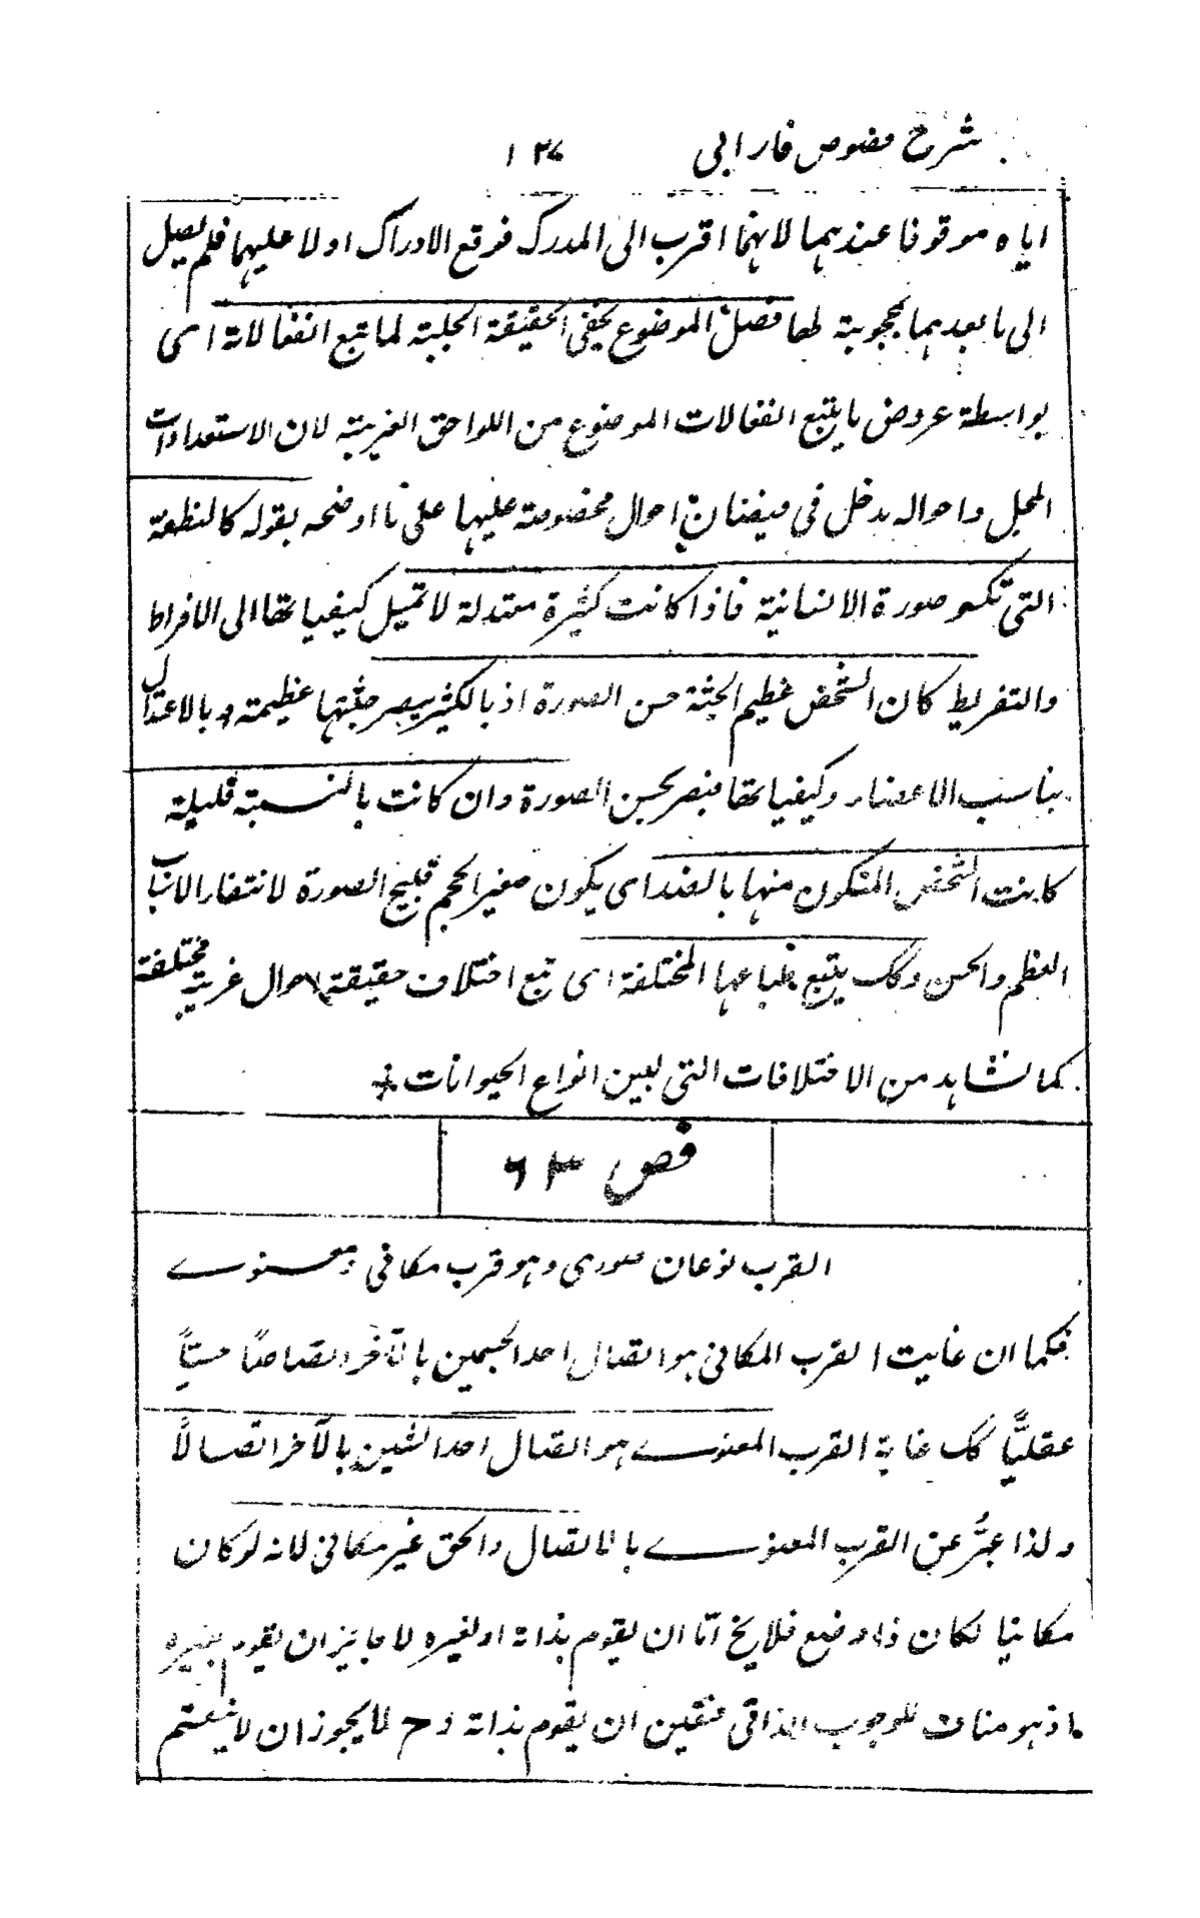 شرح فصوص فارابی ١٣٧
اياه موقوفا عندهما لانهما اقرب الى المدرك فوقع الادراك اولا عليهما فلم يصل
الى ما بعدهما محجوبية لهما فصل الموضوع يخفى الحقيقة الجلية لما تبع انفعالاته اى
بواسطة عروض ما يتبع انفعالات الموضوع من اللواحق الغريبة لان الاستعدادات
المحل واحواله يدخل فى فيضان احوال مخصوصة عليها على ما اوضحه بقوله كالنطفة
التى تكسو صورة الانسانية فاذا كانت كثيرة معتدلة لا تميل كيفياتها الى الافراط
والتفريط كان الشخص عظيم الجثة حسن الصورة اذ بالكثير يصير جثتها عظيمة و بالاعتدال
يناسب الاعضاء وكيفياتها فيصير حسن الصورة وان كانت بالنسبة قليلة
كانت الشخص المتكون منها بالضد اى يكون صغير الحجم قبيح الصورة لانتفاء الاسباب
العظم والحسن وكك يتبع طباعها المختلفة اى تبع اختلاف حقيقة احوال غريبة مختلفة
كما نشاهد من الاختلافات التى لبين انواع الحيوانات
فص ٦٣
القرب نوعان صورى وهو قرب مكانى ومعنوے
فكما ان غايت القرب المكانى هو اتصال احد الجسمين بالآخر اتصالا حسيًا
عقليًّا كك غاية القرب المعنوے هو اتصال احد الشيئين بالآخر اتصالاً
ولذا عبّر عن القرب المعنوے بالاتصال والحق غير مكانى لانه لو كان
مكانيا لكان ذا وضع فلا يخ اما ان يقوم بذاته او لغيره لا جايز ان يقوم بغيره
اذ هو مناف للوجوب الذاتى فتعين ان يقوم بذاته وح لا يجوز ان لا ينقسم